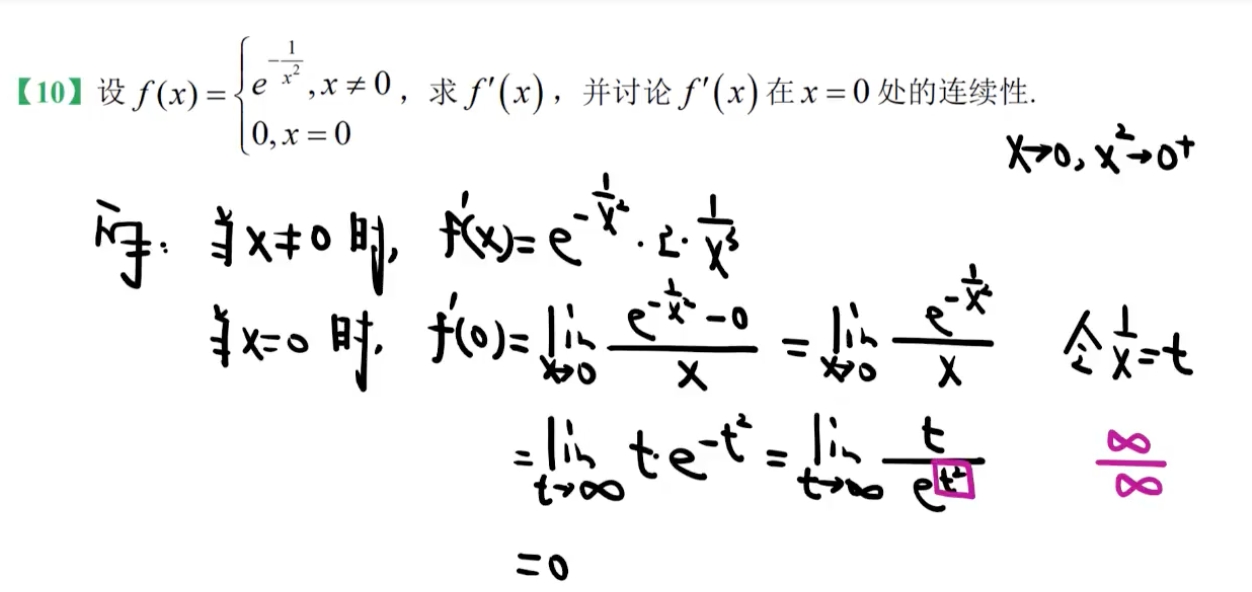 【10】设 f(x) = { e^{-1/x²}, x ≠ 0, 求 f′(x), 并讨论 f′(x) 在 x = 0 处的连续性.
0, x = 0
x→0, x²→0⁺
解: 当 x≠0 时, f′(x) = e^{-1/x²} · 2 · 1/x³
当 x=0 时, f′(0) = lim_{x→0} (e^{-1/x²} - 0)/x = lim_{x→0} e^{-1/x²}/x 令 1/x = t
= lim_{t→∞} t·e^{-t²} = lim_{t→∞} t/e^{t²} ∞/∞
= 0